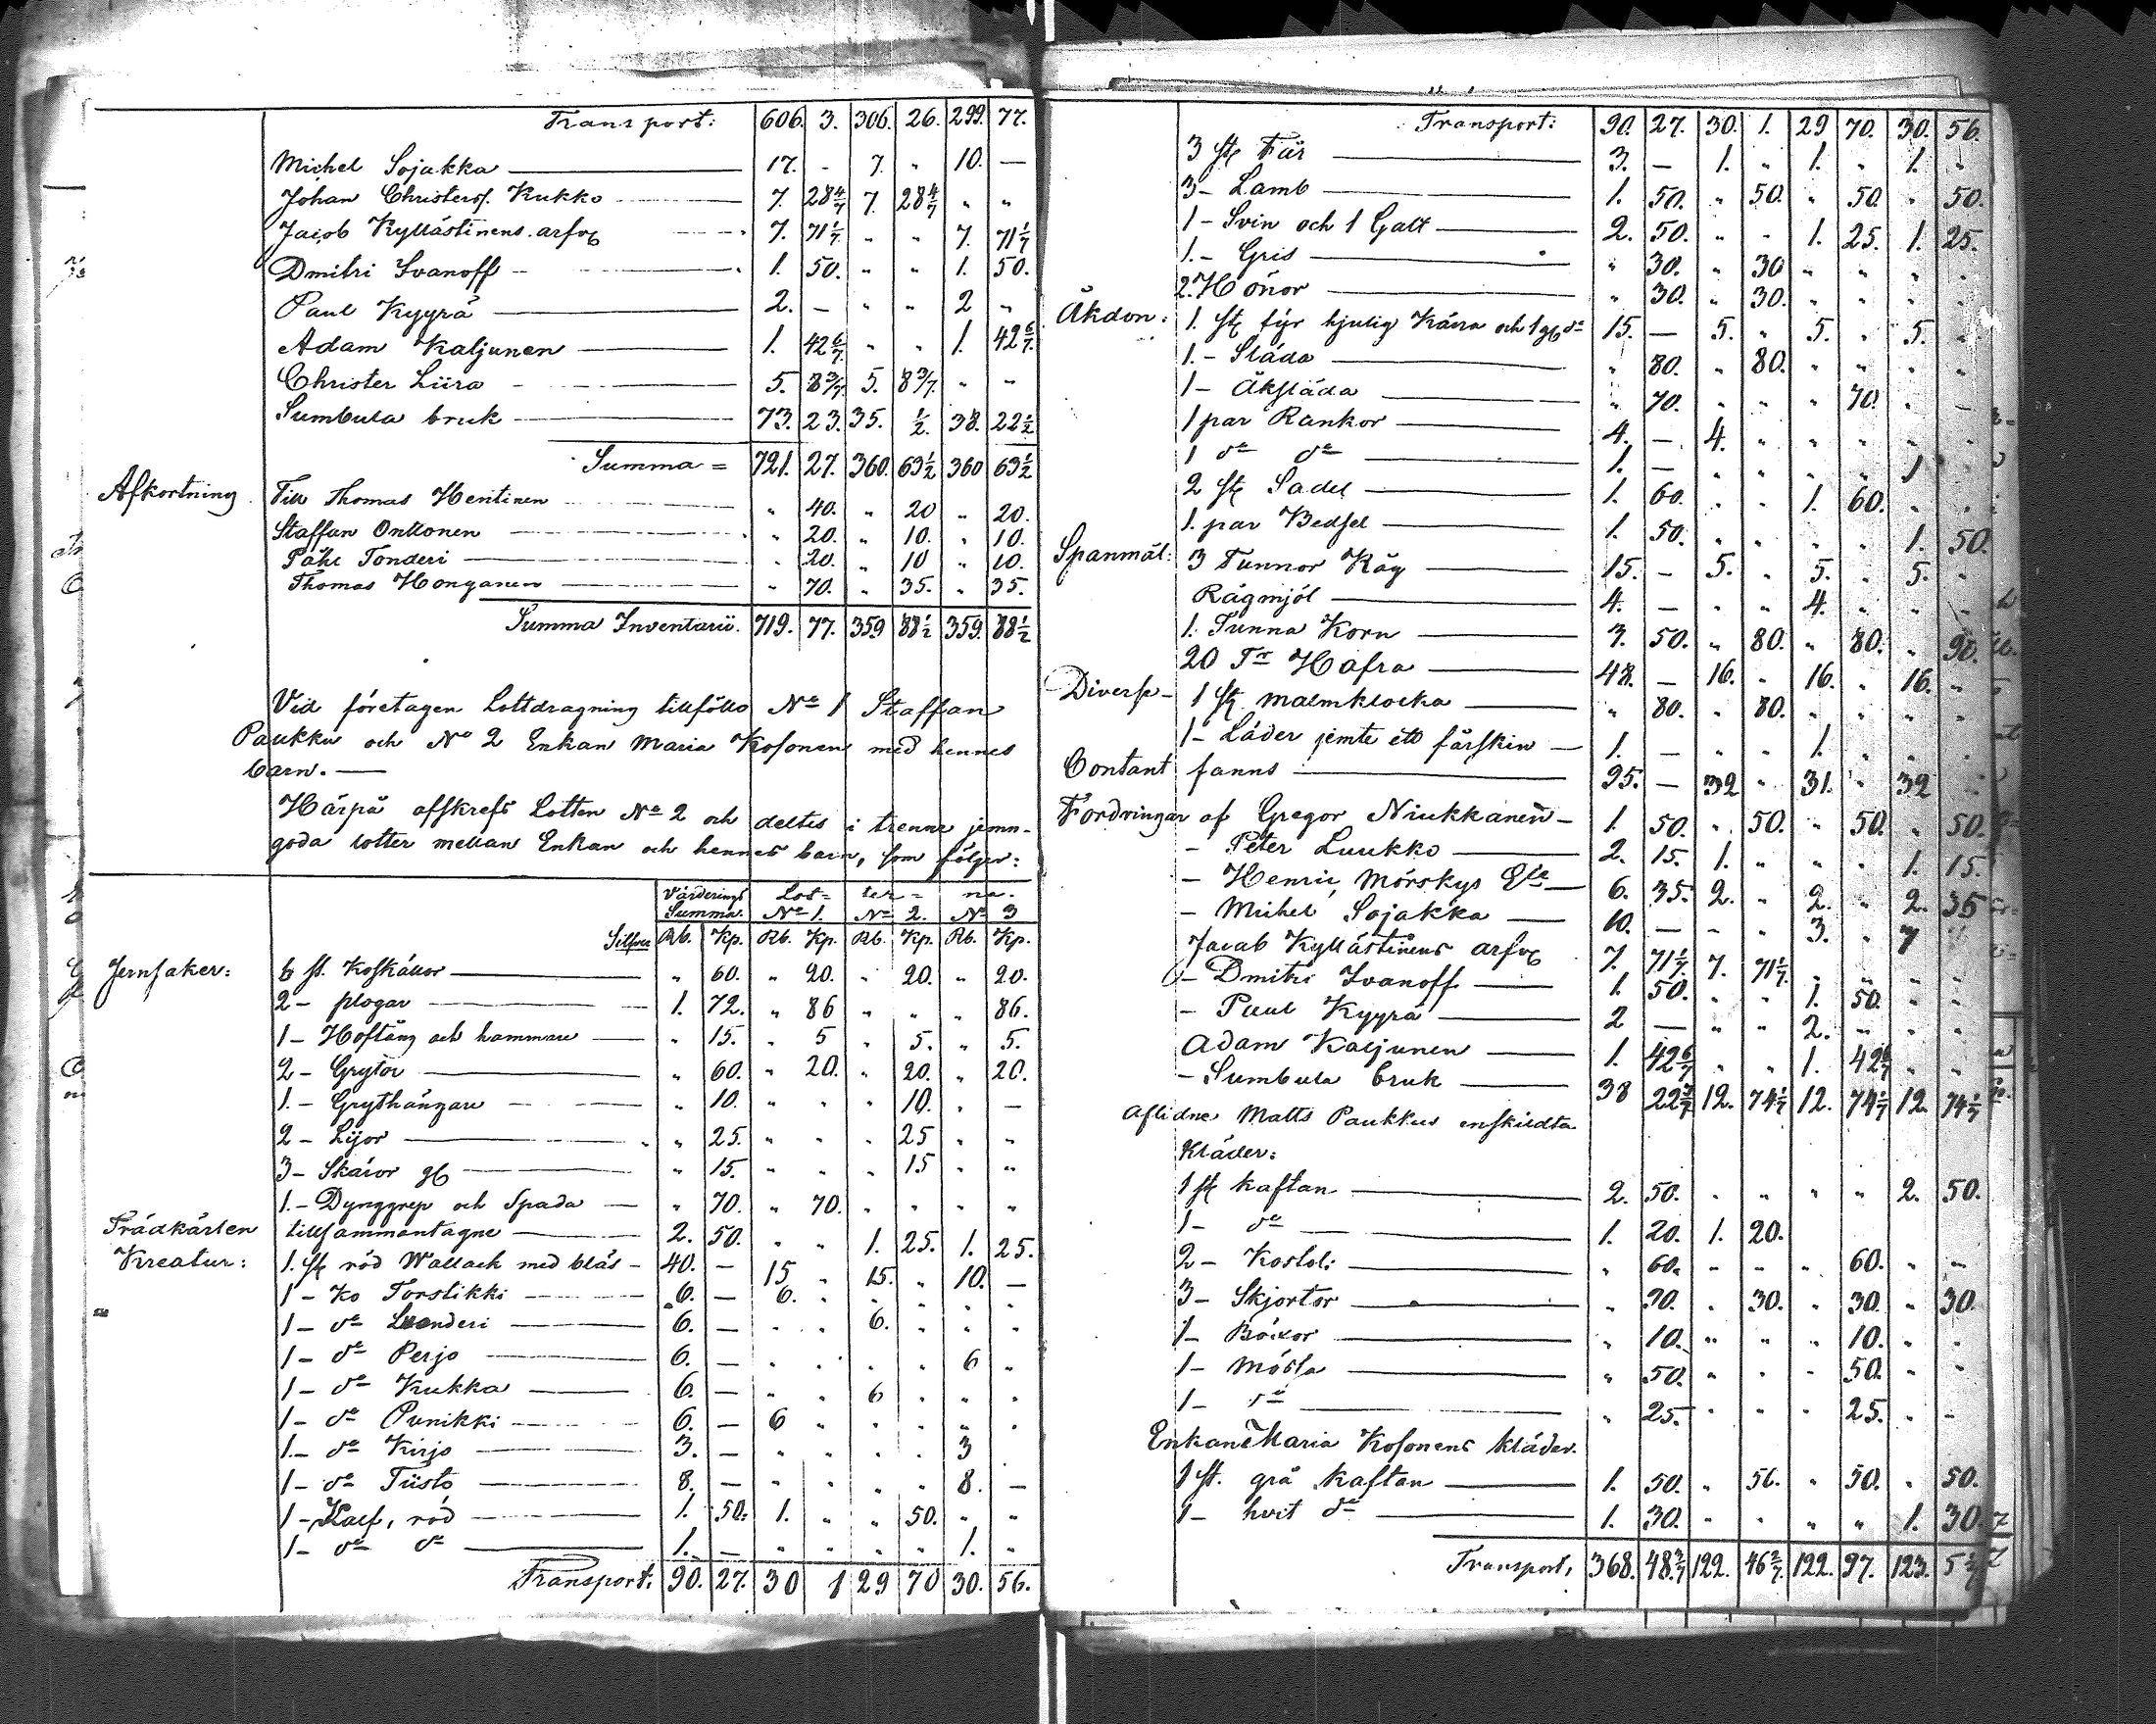 Transport: 606. 3. 306. 26. 299. 77.
Michel Sojakka 17. - 7. " 10. —
Johan Christerss. Kukko 7. 28 4/7 7. 28 4/7 " "
Jacob Kyllästinens arfvg 7. 71 1/7 " " 7. 71 1/7
Dmitri Ivanoff 1. 50. " " 1. 50.
Paul Kyyrä 2. — " " 2 "
Adam Kaljunen 1. 42 6/7 " " 1. 42 6/7
Christer Liira 5. 8 3/7 5. 8 3/7 " "
Sumbula bruk 73. 23. 35. 1/2. 38. 22 1/2
Summa = 721. 27. 360. 63 1/2 360 63 1/2
Afkortning Till Thomas Hentinen " 40. " 20 " 20.
Staffan Onttonen " 20. " 10. " 10.
Påhl Tonderi " 20. " 10 " 10.
Thomas Honganen " 70. " 35. " 35.
Summa Inventarii. 719. 77. 359 88 1/2 359. 88 1/2
Vid företagen Lottdragning tillföllo No 1 Staffan
Paukku och No 2 Enkan Maria Kosonen med hennes
barn. —
Härpå afskrefs Lotten No 2 och deltes i trenne jemn-
goda lotter mellan Enkan och hennes barn, som följer:
Värderings Lot- ter- na.
Summa. No 1. No 2. No 3
Silfver Rb. Kp. Rb. Kp. Rb. Kp. Rb. Kp.
Jernsaker: 6 st. Koskällor " 60. " 20. " 20. " 20.
2 - plogar 1. 72. " 86 " " " 86.
1 - Hoftång och hammare " 15. " 5 " 5. " 5.
2 - Grytor " 60. " 20. " 20. " 20.
1. - Grythängare " 10. " " " 10. " —
2 - Lijor " 25. " " " 25 " "
3 - Skäror gl " 15. " " " 15 " "
1. - Dynggrep och Spada " 70. " 70. " " " "
Trädkärlen tillsammantagne 2. 50. " " 1. 25. 1. 25.
Kreatur: 1. st röd Wallack med bläs - 40. — 15 " 15. " 10. —
1 - Ko Torstikki 6. — 6. " " " " "
1 - do Luonderi 6. — " " 6. " " "
1 - do Perjo 6. — " " " " 6 "
1 - do Kukka 6. — " " 6 " " "
1 - do Punikki 6. — 6 " " " " "
1. - do Kirjo 3. — " " " " 3
1 - do Tiisto 8. — " " " " 8. —
1 - Kalf, röd 1. 50. 1. " " 50. " "
1 - do do 1. — " " " " 1. "
Transport: 90. 27. 30 1 29 70 30. 56.
Transport: 90. 27. 30. 1. 29 70. 30. 56.
3 st Får 3. — 1. " 1. " 1. "
3 - Lamb 1. 50. " 50. " 50. " 50.
1 - Svin och 1 Galt 2. 50. " " 1. 25. 1. 25.
1. - Gris " 30. " 30 " " " "
2. Hönor " 30. " 30. " " " "
Åkdon: 1. st fyr hjulig Kärra och 1 gl do 15. — 5. " 5. " 5. "
1. - Släda " 80. " 80. " " " "
1 - Åksläda " 70. " " " 70. " —
1 par Rankor 4. — 4. " " " " "
1 do do 1. — " " " " 1 "
2 st Sadel 1. 60. " " 1. 60. " "
1. par Bedsel 1. 50. " " " " 1. 50.
Spanmål: 3 Tunnor Råg 15. — 5. " 5. " 5. "
Rågmjöl 4. — " " 4. " " "
1. Tunna Korn 3. 50. " 80. " 80. " 90.
20 Tr Hafra 48. — 16. " 16. " 16. "
Diverse - 1 st malmklocka " 80. " 80. " " " "
1 - Läder jemte ett fårskin 1. — " " 1. " " "
Contant fanns 95. — 32 " 31. " 32
Fordringar af Gregor Niukkanen - 1. 50. " 50. " 50. " 50.
- Peter Luukko 2. 15. 1. " " " 1. 15.
- Henric Mörskys 6. 35. 2. " 2. " 2. 35
- Michel Sojakka 10. — - - 3. " 7 "
Jacob Kyllästinens arfvg 7. 71 1/7. 7. 71 1/7. " " " "
- Dmitri Ivanoff 1. 50. " " 1. 50. " "
- Paul Kyyrä 2 — " " 2. " " "
Adam Kaljunen 1. 42 6/7 " " 1. 42 6/7 " "
- Sumbula bruk 38 22 3/7 12. 74 1/7 12. 74 1/7 12. 74 1/7
Aflidne Matts Paukkus enskildta
Kläder:
1 st kaftan 2. 50. " " " " 2. 50.
1 - do 1. 20. 1. 20.
2 - Kostol: " 60. - - " 60. " "
3 - Skjortor " 90. " 30. " 30. " 30.
1 - Böxor " 10. " " " 10. " "
1 - Mössa " 50. " " " 50. " "
1 - do " 25. " " " 25. " "
Enkan Maria Kosonens kläder.
1 st. grå kaftan 1. 50. " 50. " 50. " 50.
1 - hvit do 1. 30. " " " " 1. 30.
Transport, 368. 48 3/7 122. 46 2/7. 122. 97. 123. 5 1/7